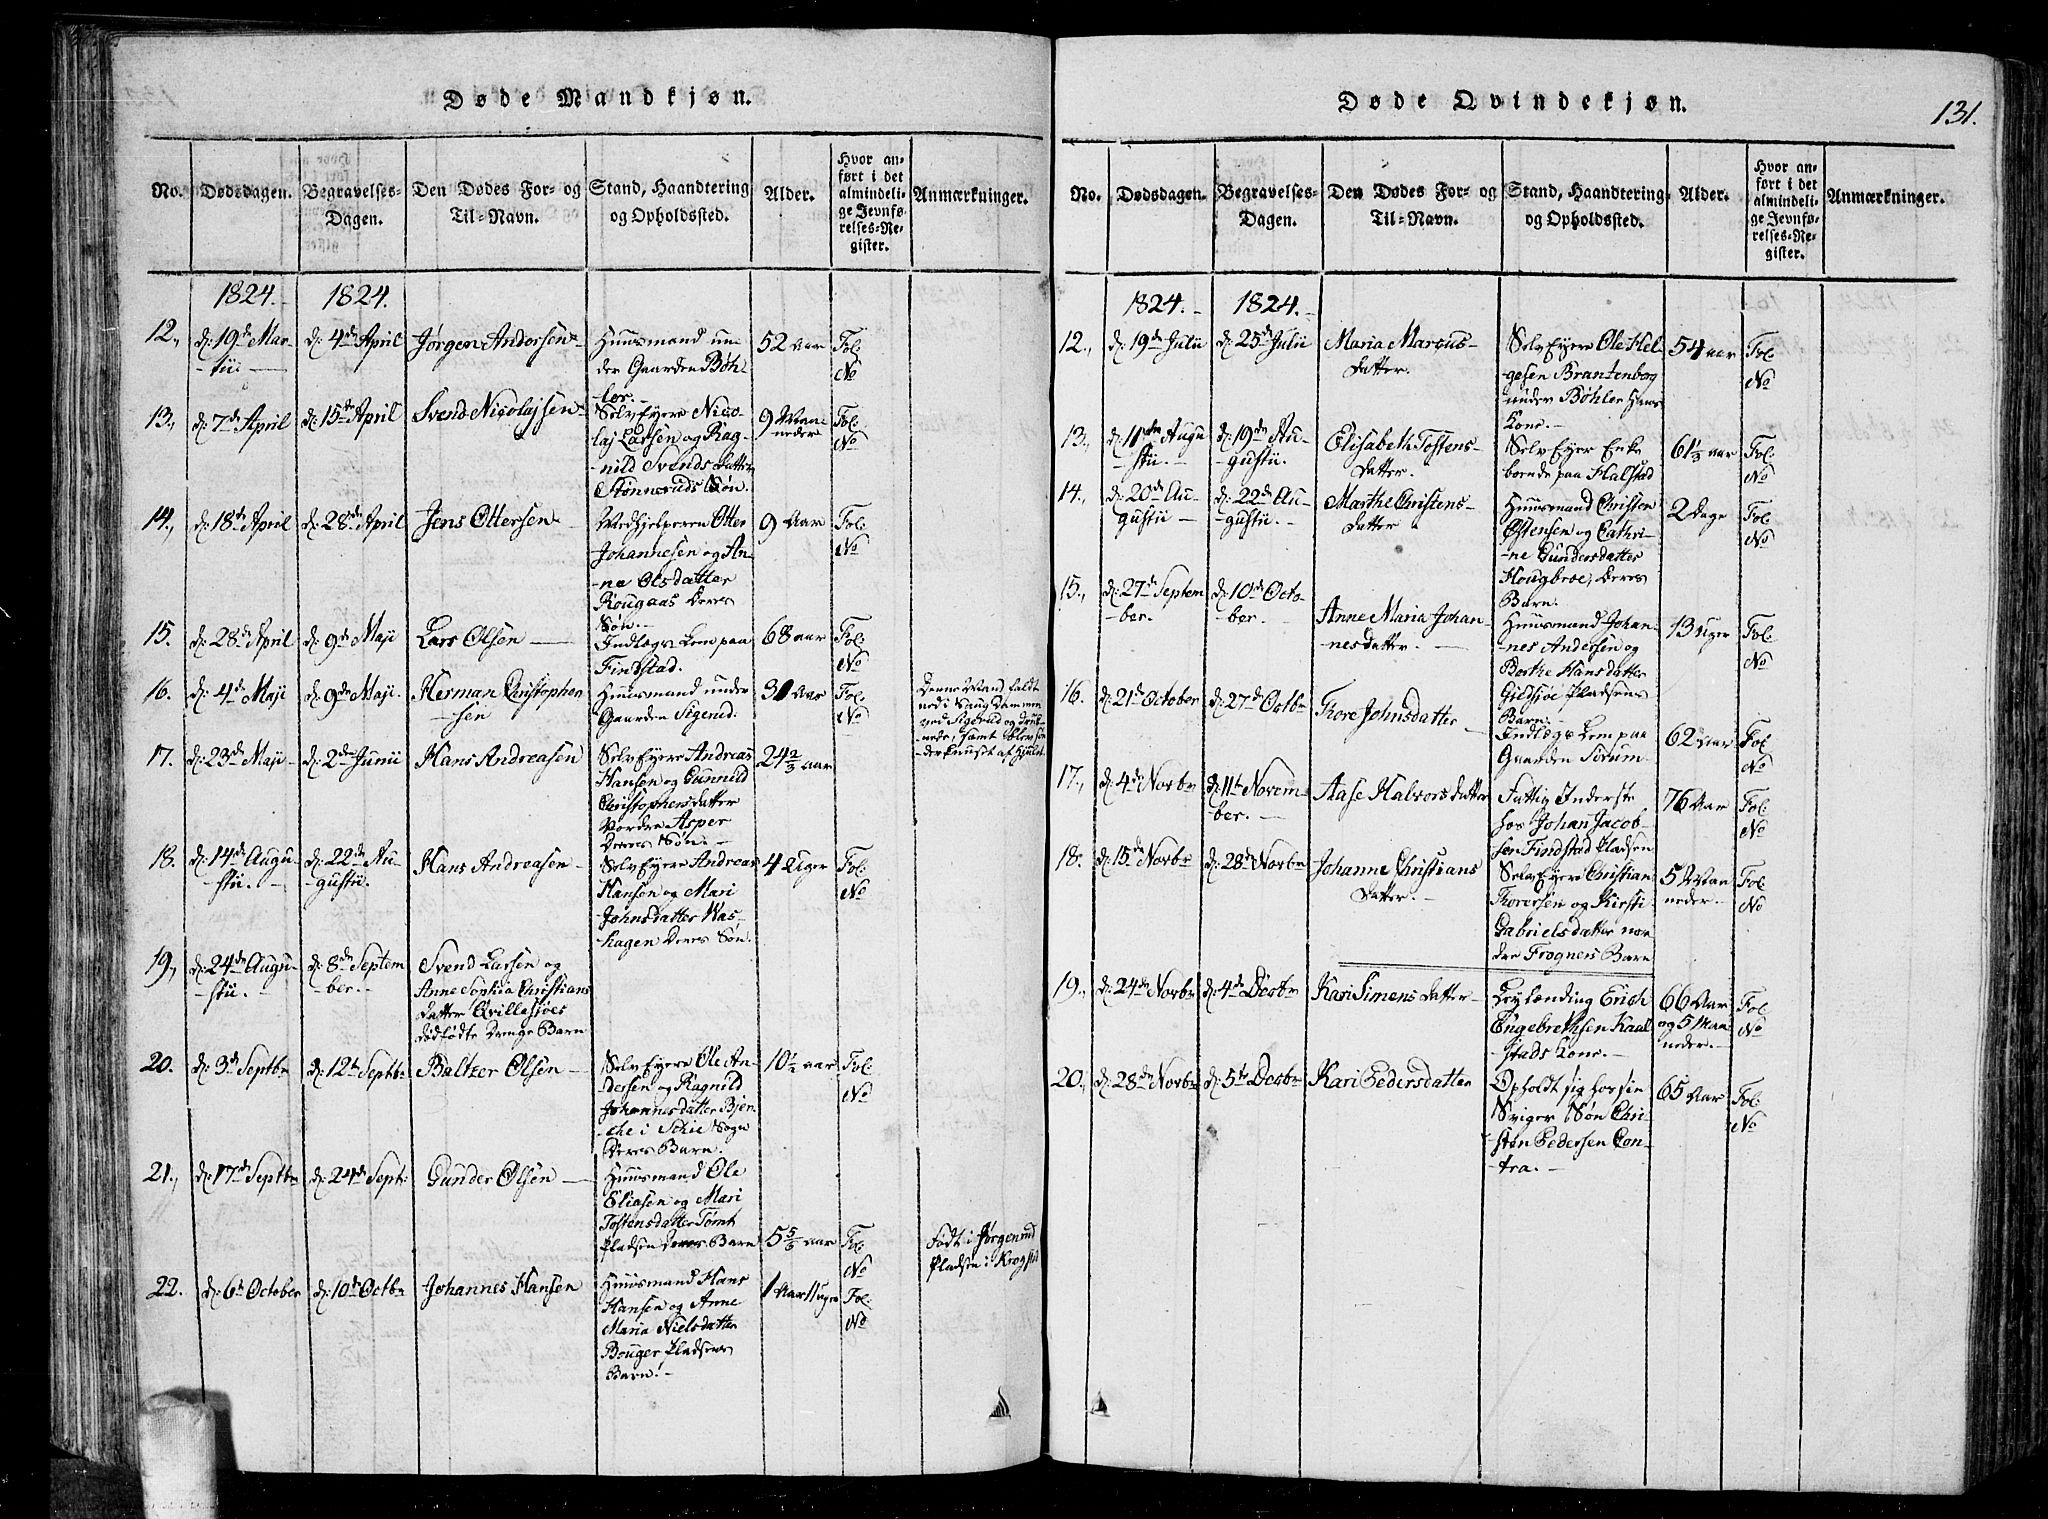 Døde Mandkjøn.
No.
Dødsdagen.
Begravelses-
Dagen.
Den Dødes For- og
Til-Navn.
Stand, Haandtering
og Opholdssted.
Alder.
Hvor an-
ført i det
almindeli-
ge Jevnfø-
relses-Re-
gister.
Anmærkninger.
1824.
1824.
12.,
d: 19de Mar-
tii.
d: 4de April
Jørgen Andersen
Huusmand un-
der Gaarden Bøh-
ler.
52 Aar
Fol:
No
13.,
d: 7de April
d: 15de April
Svend Nicolajsen
SelvEyere Nico-
laj Larsen og Rag-
nild Svends Datter
Stønneruds Søn.
9 Maa-
neder
Fol:
No
14.,
d: 18de April
d: 28de April
Jens Ottersen
Medhjelperen Otter
Johannesen og An-
ne Olsdatter
Rougaas Deres
Søn.
9 Aar
Fol:
No
15.
d: 28de April
d: 9de Maji
Lars Olsen
Indlægs Lem paa
Findstad.
68 aar
Fol:
No
16.
d: 4de Maji
d: 9de Maji.
Herman Christopher
sen
Huusmand under
Gaarden Sigerud.
31 Aar
Fol:
No
Denne Mand faldt
ned i Saug Dammen
ved Sigerud og druk-
nede, samt blev
af Hjulet.
17.
d: 23de Maji
d: 2de Junii
Hans Andreasen
SelvEyere Andreas
Hansen og Gunnild
Christophersdatter
Nordre Asper
Deres Søn.
24 2/3 aar
18.
d: 14de Augu-
stii.
d: 22de Au-
gustii.
Hans Andreasen
SelvEyere Andreas
Hansen og Mari
Johnsdatter Was-
hagen Deres Søn.
4 Uger
Fol:
No
19.,
d: 24de Augu-
stii.
d: 8de Septem
ber.
Svend Larsen og
Anne Sophia Christians
Datter Qvillesjøes
dødfødte Drenge Barn
20.
d: 3de Septbr
d: 12te Septbr
Baltzer Olsen
SelvEyere Ole An-
dersen og Ragnild
Johannesdatter Bjer-
che i Schie Sogn
Deres Barn.
10 1/2 aar
Fol:
No
21.,
d: 17de Septbr
d: 24de Sept:
Gunder Olsen
Huusmand Ole
Eliasen og Mari
Tostensdatter Tømt
Pladsen Deres Barn
5 5/6 aar
Fol:
No
Født i Jørgenrud
Pladsen i Krogstad
22.
d: 6te October
d: 10de Octbr
Johannes Hansen
Huusmand Hans
Hansen og Anne
Maria Nielsdatter
Bouger Pladsens
Barn.
1 Aar 11 uger
Fol:
No
Døde Qvindekjøn.
131.
No.
Dødsdagen.
Begravelses-
Dagen.
Den Dødes For- og
Til-Navn.
Stand, Haandtering
og Opholdssted.
Alder.
Hvor an-
ført i det
almindeli-
ge Jevnfø-
relses-Re-
gister.
Anmærkninger.
1824.
1824.
12.,
d: 19de Julii
d: 25de Julii
Maria Marcus-
Datter.
SelvEyere Ole Hel-
gesen Brantenborg
under Bøhler Hans
Kone.
54 aar
Fol:
No
13.,
d: 11te Augu
stii.
d: 19de Au-
gustii.
Elisabeth Tostens-
Datter.
SelvEyer Enke
boende paa Halstad
61 1/3 aar
Fol:
No
14.,
d: 20de Au-
gustii
d: 22de Au-
gustii.
Marthe Christens-
Datter
Huusmand Christen
Østensen og Cathri-
ne Gundersdatter
Hougbroe, Deres
Barn.
2 Dage
Fol:
No
15.,
d: 27de Septem
ber.
d: 10de Octo-
ber.
Anne Maria Johan-
nesdatter.
Huusmand Johan-
nes Andersen og
Berthe Hansdatter
Gidsjøe Pladsens
Barn.
13 Uger
Fol:
No
16.
d: 21de October
d: 27de Octbr
Thore Johnsdatter
Indlægs Lem paa
Gaarden Sørum.
62 Aar
Fol:
No
17.,
d: 4de Novbr
d: 11te Novem-
ber.
Aase Halvors Datter
Fattig Inderste
hos Johan Jacob-
sen Findstad Pladsen
76 Aar
Fol:
No
18.
d: 15de Novbr
d: 28de Novbr
Johanne Christians
Datter.
SelvEyere Christian
Thoresen og Kirsti
Gabrielsdatter nor
dre Frogners Barn
5 Maa
neder.
Fol:
No
19.,
d: 24de Novbr
d: 4de Decbr
Kari Simens Datter
Leylænding Erich
Engebrethsen Kaal
stads Kone.
66 Aar
og 5 Maa
neder.
Fol:
No
20.,
d: 28de Novbr
d: 5te Decbr
Kari Pedersdatter
Opholdt sig hos sin
Sviger Søn Chri-
sten Pedersen Con-
tra.
65 Aar
Fol:
No